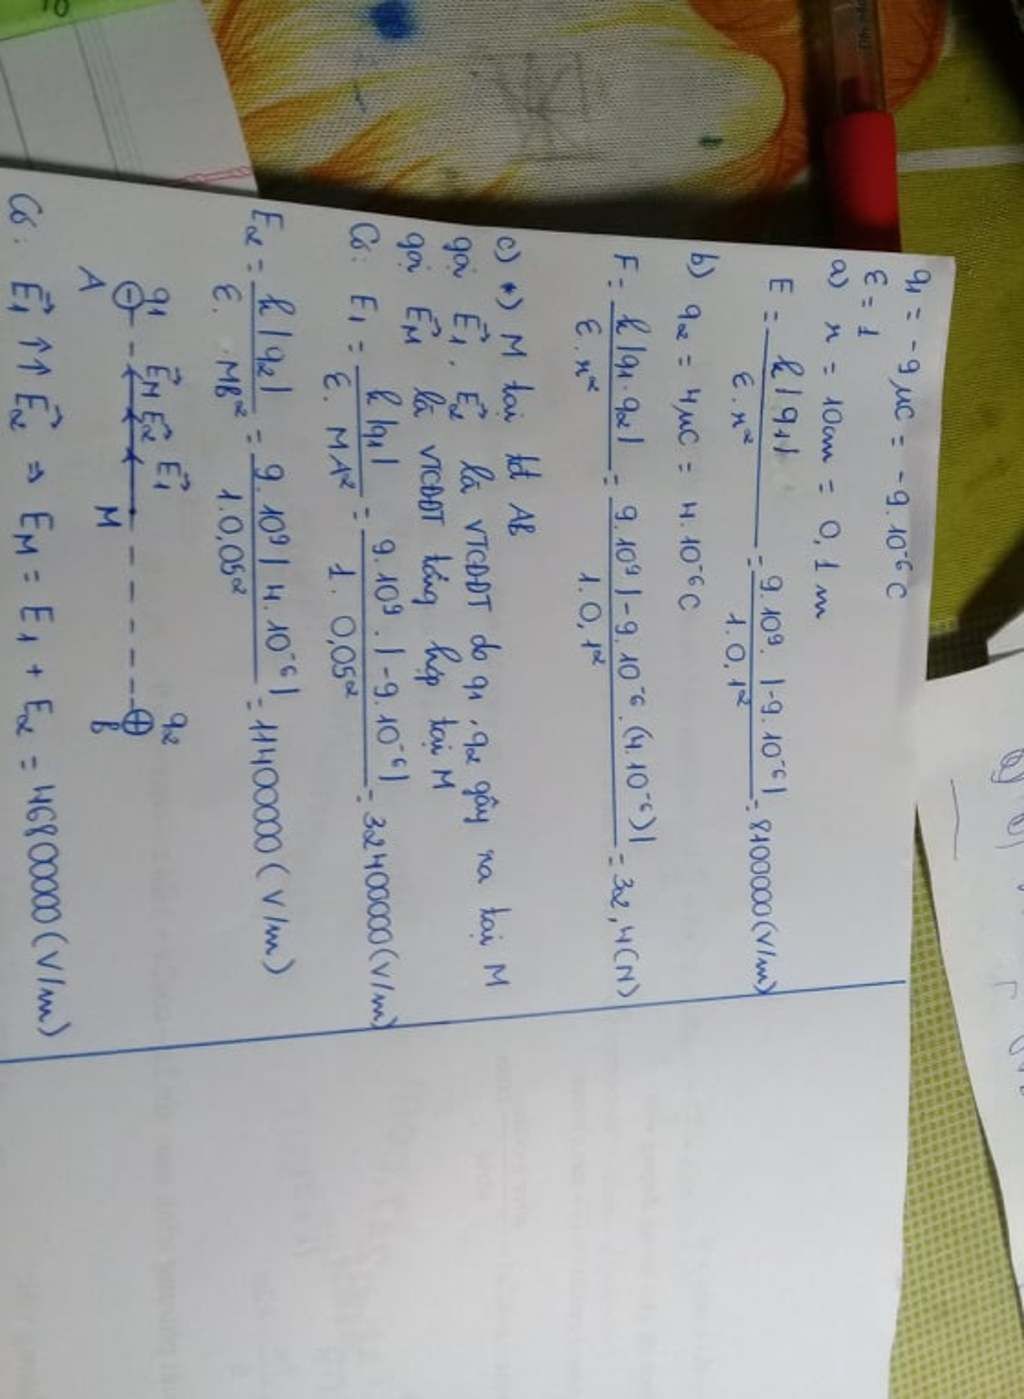 q1 = -9μC = -9.10⁻⁶C
ε = 1
a) r = 10cm = 0,1m
E = k|q1| / ε.r² = 9.10⁹.|-9.10⁻⁶| / 1.0,1² = 8100000(V/m)
b) q2 = 4μC = 4.10⁻⁶C
F = k|q1.q2| / ε.r² = 9.10⁹|-9.10⁻⁶.(4.10⁻⁶)| / 1.0,1² = 32,4(N)
c) *) M tại tđ AB
gọi E⃗1, E⃗2 là VTCĐĐT do q1, q2 gây ra tại M
gọi E⃗M là VTCĐĐT tổng hợp tại M
Có: E1 = k|q1| / ε.MA² = 9.10⁹.|-9.10⁻⁶| / 1.0,05² = 32400000(V/m)
E2 = k|q2| / ε.MB² = 9.10⁹|4.10⁻⁶| / 1.0,05² = 11400000(V/m)
q1 E⃗M E⃗2 E⃗1 q2
⊖ ⊕
A M B
Có: E⃗1 ↑↑ E⃗2 ⇒ EM = E1 + E2 = 46800000(V/m)